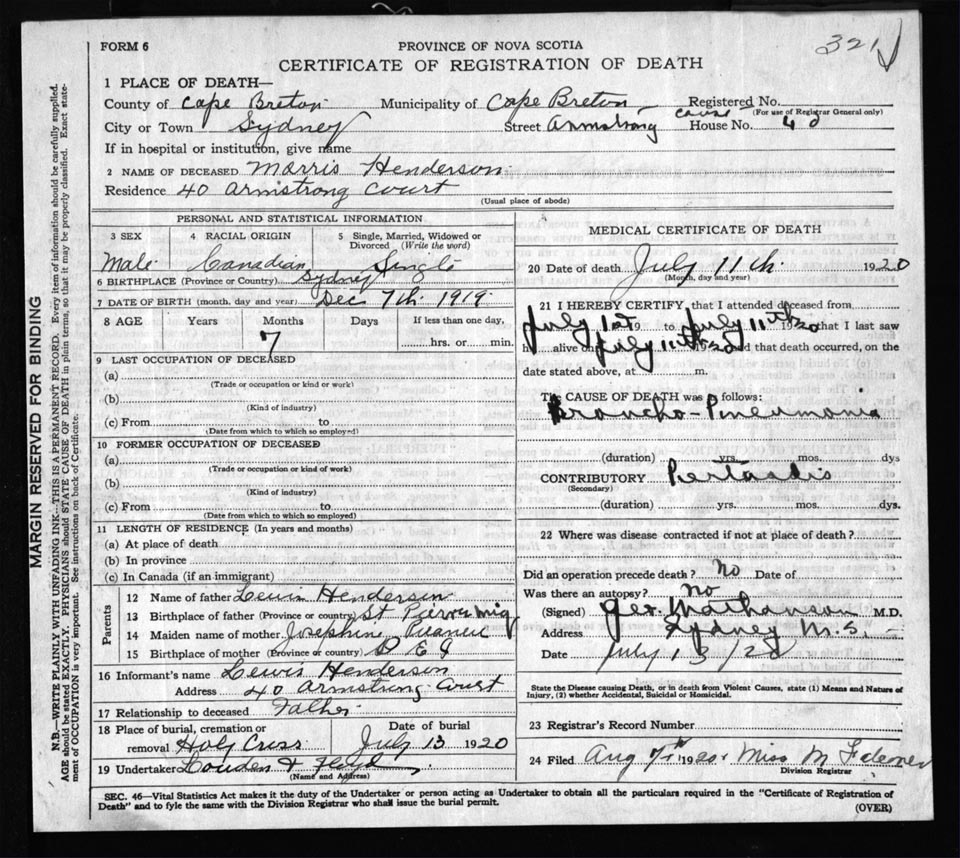 321
FORM 6
PROVINCE OF NOVA SCOTIA
CERTIFICATE OF REGISTRATION OF DEATH
1 PLACE OF DEATH—
County of Cape Breton Municipality of Cape Breton Registered No.
(For use of Registrar General only)
City or Town Sydney Street Armstrong House No. 40
If in hospital or institution, give name
2 NAME OF DECEASED Morris Henderson
Residence 40 Armstrong Court
(Usual place of abode)
PERSONAL AND STATISTICAL INFORMATION
3 SEX 4 RACIAL ORIGIN 5 Single, Married, Widowed or Divorced (Write the word)
Male Canadian Single
6 BIRTHPLACE (Province or Country) Sydney
7 DATE OF BIRTH (month, day and year) Dec 7th 1919
8 AGE Years Months Days If less than one day,
7 hrs. or min.
9 LAST OCCUPATION OF DECEASED
(a)
(Trade or occupation or kind or work)
(b)
(Kind of industry)
(c) From to
(Date from which to which so employed)
10 FORMER OCCUPATION OF DECEASED
(a)
(Trade or occupation or kind of work)
(b)
(Kind of industry)
(c) From to
(Date from which to which so employed)
11 LENGTH OF RESIDENCE (In years and months)
(a) At place of death
(b) In province
(c) In Canada (if an immigrant)
Parents
12 Name of father Lewis Henderson
13 Birthplace of father (Province or country) St Pierre Miq
14 Maiden name of mother Josephine
15 Birthplace of mother (Province or country) P E I
16 Informant's name Lewis Henderson
Address 40 Armstrong Court
17 Relationship to deceased Father
18 Place of burial, cremation or removal Holy Cross
Date of burial July 13 1920
19 Undertaker Louden & Floyd
(Name and Address)
MEDICAL CERTIFICATE OF DEATH
20 Date of death July 11th 1920
(Month, day and year)
21 I HEREBY CERTIFY, that I attended deceased from
July 1st 19 to July 11th 1920 that I last saw
h alive on July 11th 1920 and that death occurred, on the
date stated above, at m.
The CAUSE OF DEATH was as follows:
Broncho-Pneumonia
(duration) yrs. mos. dys
CONTRIBUTORY Pertussis
(Secondary)
(duration) yrs. mos. dys.
22 Where was disease contracted if not at place of death?
Did an operation precede death? No Date of
Was there an autopsy? No
(Signed) M.D.
Address Sydney N.S.
Date July 13/20
State the Disease causing Death, or in death from Violent Causes, state (1) Means and Nature of
Injury, (2) whether Accidental, Suicidal or Homicidal.
23 Registrar's Record Number
24 Filed Aug 7th 1920 Miss M
Division Registrar
SEC. 46—Vital Statistics Act makes it the duty of the Undertaker or person acting as Undertaker to obtain all the particulars required in the "Certificate of Registration of
Death" and to fyle the same with the Division Registrar who shall issue the burial permit.
(OVER)
MARGIN RESERVED FOR BINDING
N.B.—WRITE PLAINLY WITH UNFADING INK—THIS IS A PERMANENT RECORD. Every item of information should be carefully supplied.
AGE should be stated EXACTLY. PHYSICIANS should STATE CAUSE OF DEATH in plain terms, so that it may be properly classified. Exact state-
ment of OCCUPATION is very important. See instructions on back of Certificate.